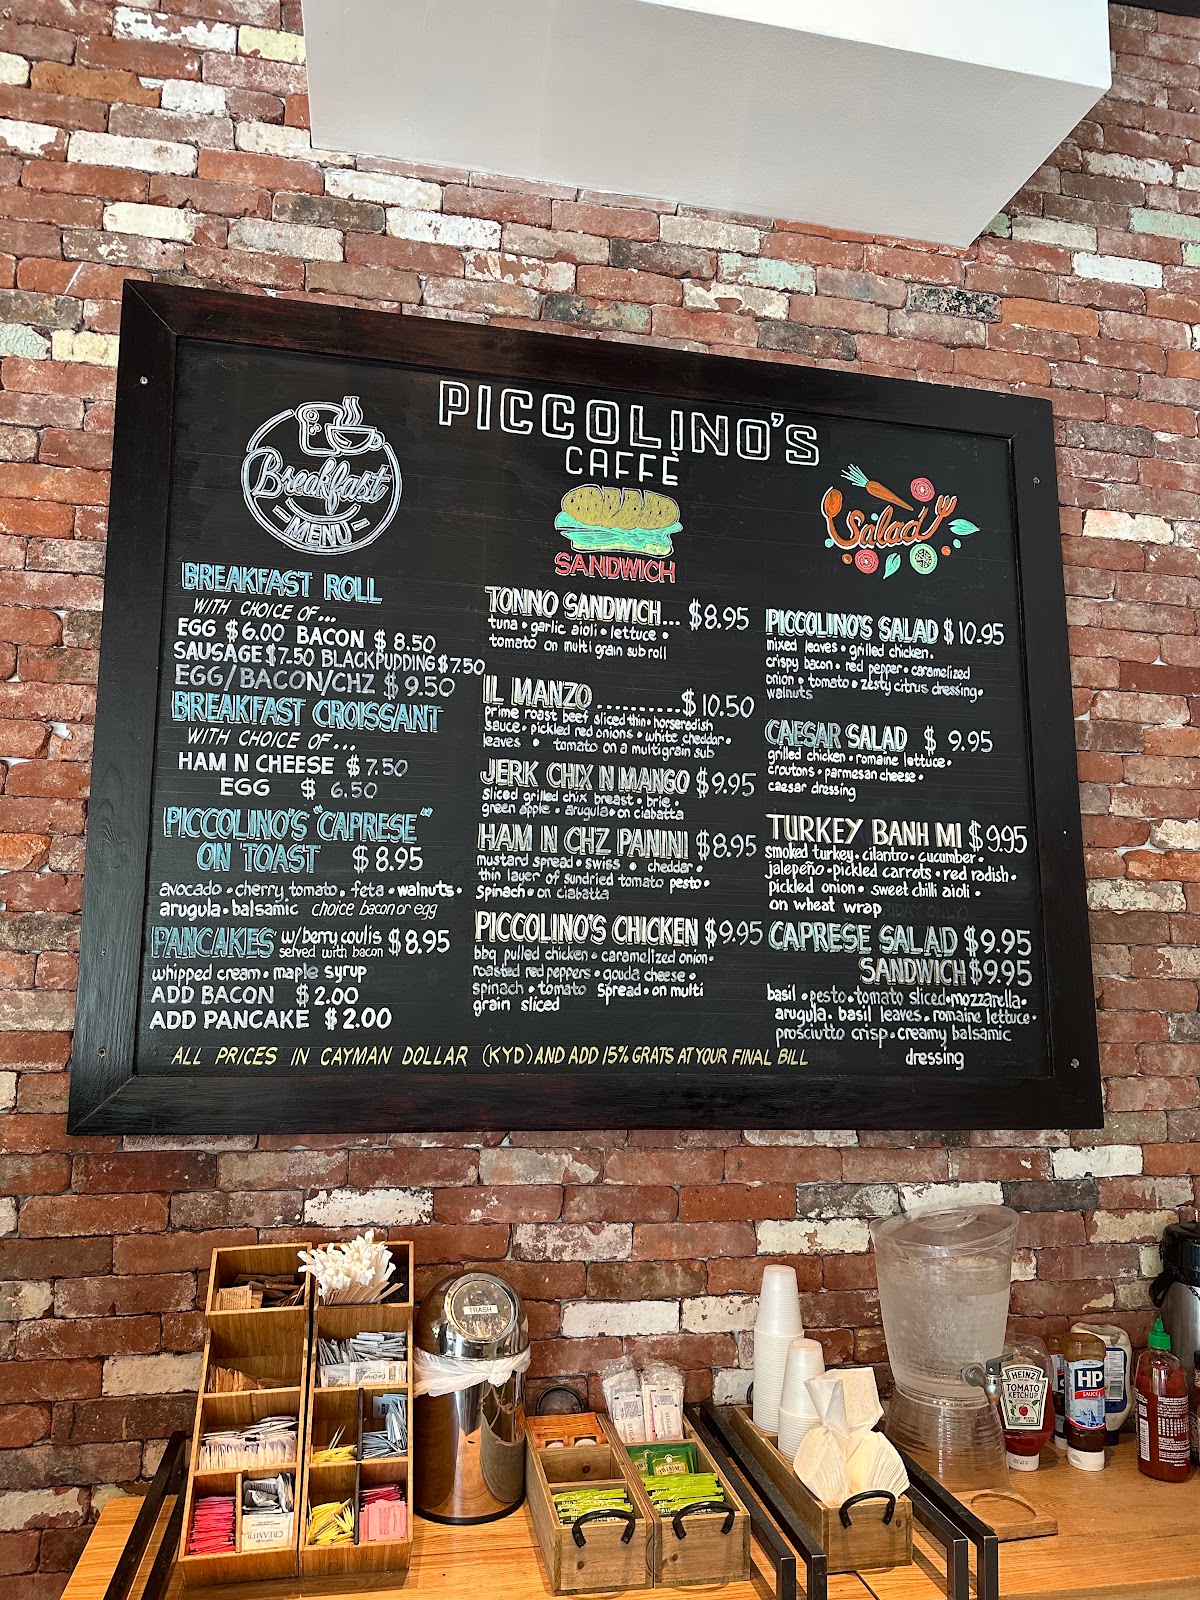 PICCOLINO'S
CAFFÈ
Breakfast
MENU
BREAKFAST ROLL
WITH CHOICE OF...
EGG $6.00 BACON $8.50
SAUSAGE $7.50 BLACKPUDDING $7.50
EGG/BACON/CHZ $9.50
BREAKFAST CROISSANT
WITH CHOICE OF...
HAM N CHEESE $7.50
EGG $ 6.50
PICCOLINO'S "CAPRESE"
ON TOAST $8.95
avocado • cherry tomato • feta • walnuts •
arugula • balsamic choice bacon or egg
PANCAKES w/berry coulis $8.95
served with bacon
whipped cream • maple syrup
ADD BACON $2.00
ADD PANCAKE $2.00
SANDWICH
TONNO SANDWICH... $8.95
tuna • garlic aioli • lettuce •
tomato on multi grain sub roll
IL MANZO..........$10.50
prime roast beef sliced thin • horseradish
sauce • pickled red onions • white cheddar •
leaves • tomato on a multigrain sub
JERK CHIX N MANGO $9.95
sliced grilled chix breast • brie •
green apple • arugula • on ciabatta
HAM N CHZ PANINI $8.95
mustard spread • swiss • cheddar •
thin layer of sundried tomato pesto •
spinach • on ciabatta
PICCOLINO'S CHICKEN $9.95
bbq pulled chicken • caramelized onion •
roasted red peppers • gouda cheese •
spinach • tomato spread • on multi
grain sliced
Salad
PICCOLINO'S SALAD $10.95
mixed leaves • grilled chicken •
crispy bacon • red pepper • caramelized
onion • tomato • zesty citrus dressing •
walnuts
CAESAR SALAD $ 9.95
grilled chicken • romaine lettuce •
croutons • parmesan cheese •
caesar dressing
TURKEY BANH MI $9.95
smoked turkey • cilantro • cucumber •
jalepeño • pickled carrots • red radish •
pickled onion • sweet chilli aioli •
on wheat wrap
CAPRESE SALAD $9.95
SANDWICH $9.95
basil • pesto • tomato sliced • mozzarella •
arugula • basil leaves • romaine lettuce •
prosciutto crisp • creamy balsamic
dressing
ALL PRICES IN CAYMAN DOLLAR (KYD) AND ADD 15% GRATS AT YOUR FINAL BILL
TRASH
HEINZ
TOMATO
KETCHUP
HP
SAUCE
CREAMER
TWININGS